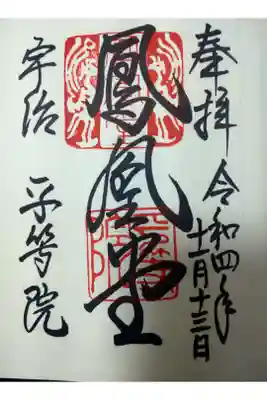 奉拝
令和四年
十一月十三日
鳳凰堂
宇治
平等院